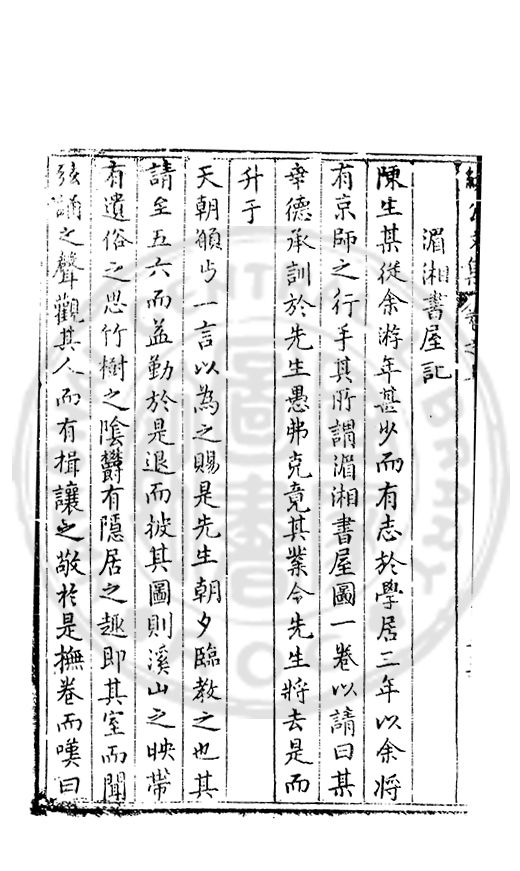 湄湘書屋記
陳生某從余游年甚少而有志於學居三年以余將
有京師之行手其所謂湄湘書屋圖一卷以請曰某
幸德承訓於先生愚弗克竟其業今先生將去是而
升于
天朝願丐一言以為之賜是先生朝夕臨教之也其
請至五六而益勤於是退而披其圖則溪山之映帶
有遺俗之思竹樹之陰欝有隱居之趣即其室而聞
弦誦之聲觀其人而有揖讓之敬於是撫卷而嘆曰